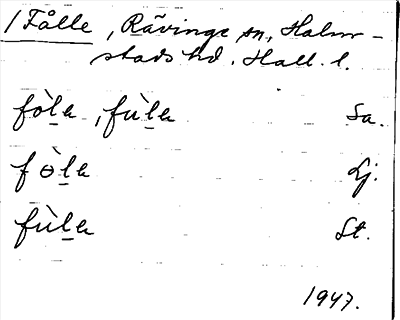 1 Fålle, Rävinge sn, Halm-
stads hd. Hall. l.
fò̱la, fù̱la Sa.
fɵ̀la Lj.
fùla St.
1947.